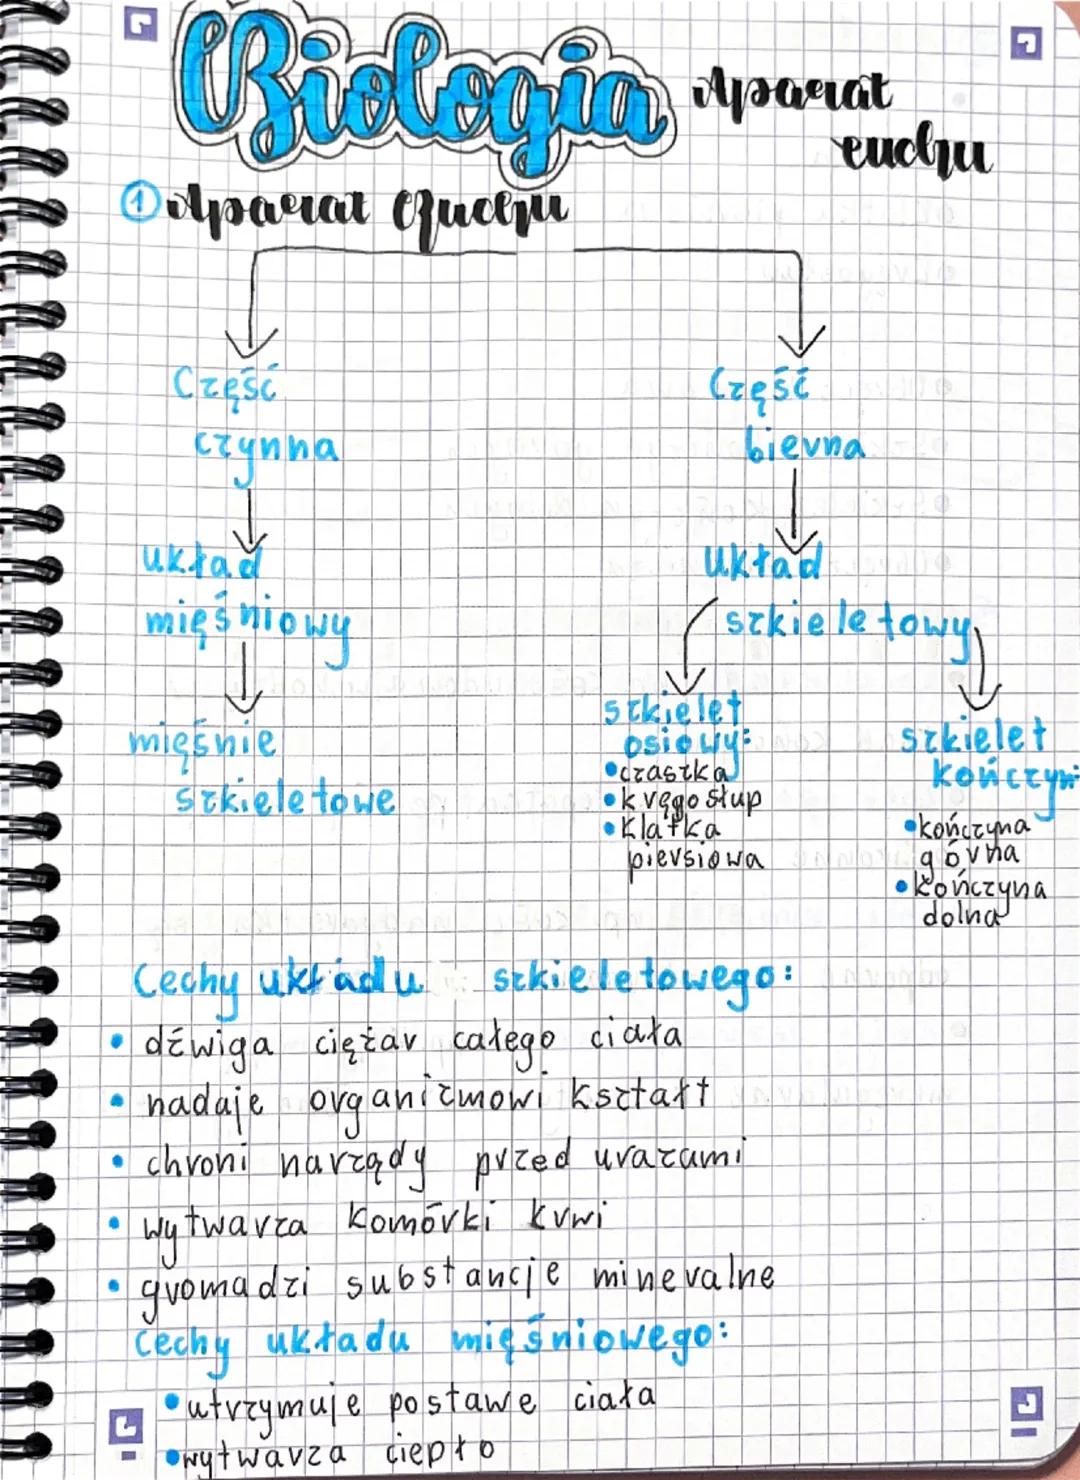 Biologia Aparat
ruchu
1 Aparat Ruchu
Część
czynna
układ
mięśniowy
mięśnie
szkieletowe
Część
bierna
Układ
szkieletowy
szkielet
osiowy:
• czaszka
• kręgosłup
• Klatka
piersiowa
szkielet
kończyn:
• kończyna
górna
• kończyna
dolna
Cechy układu szkieletowego:
• dźwiga ciężar całego ciała
• nadaje organizmowi kształt
• chroni narządy przed urazami
• wytwarza komórki krwi
• gromadzi substancje mineralne
Cechy układu mięśniowego:
• utrzymuje postawe ciała
• wytwarza ciepło